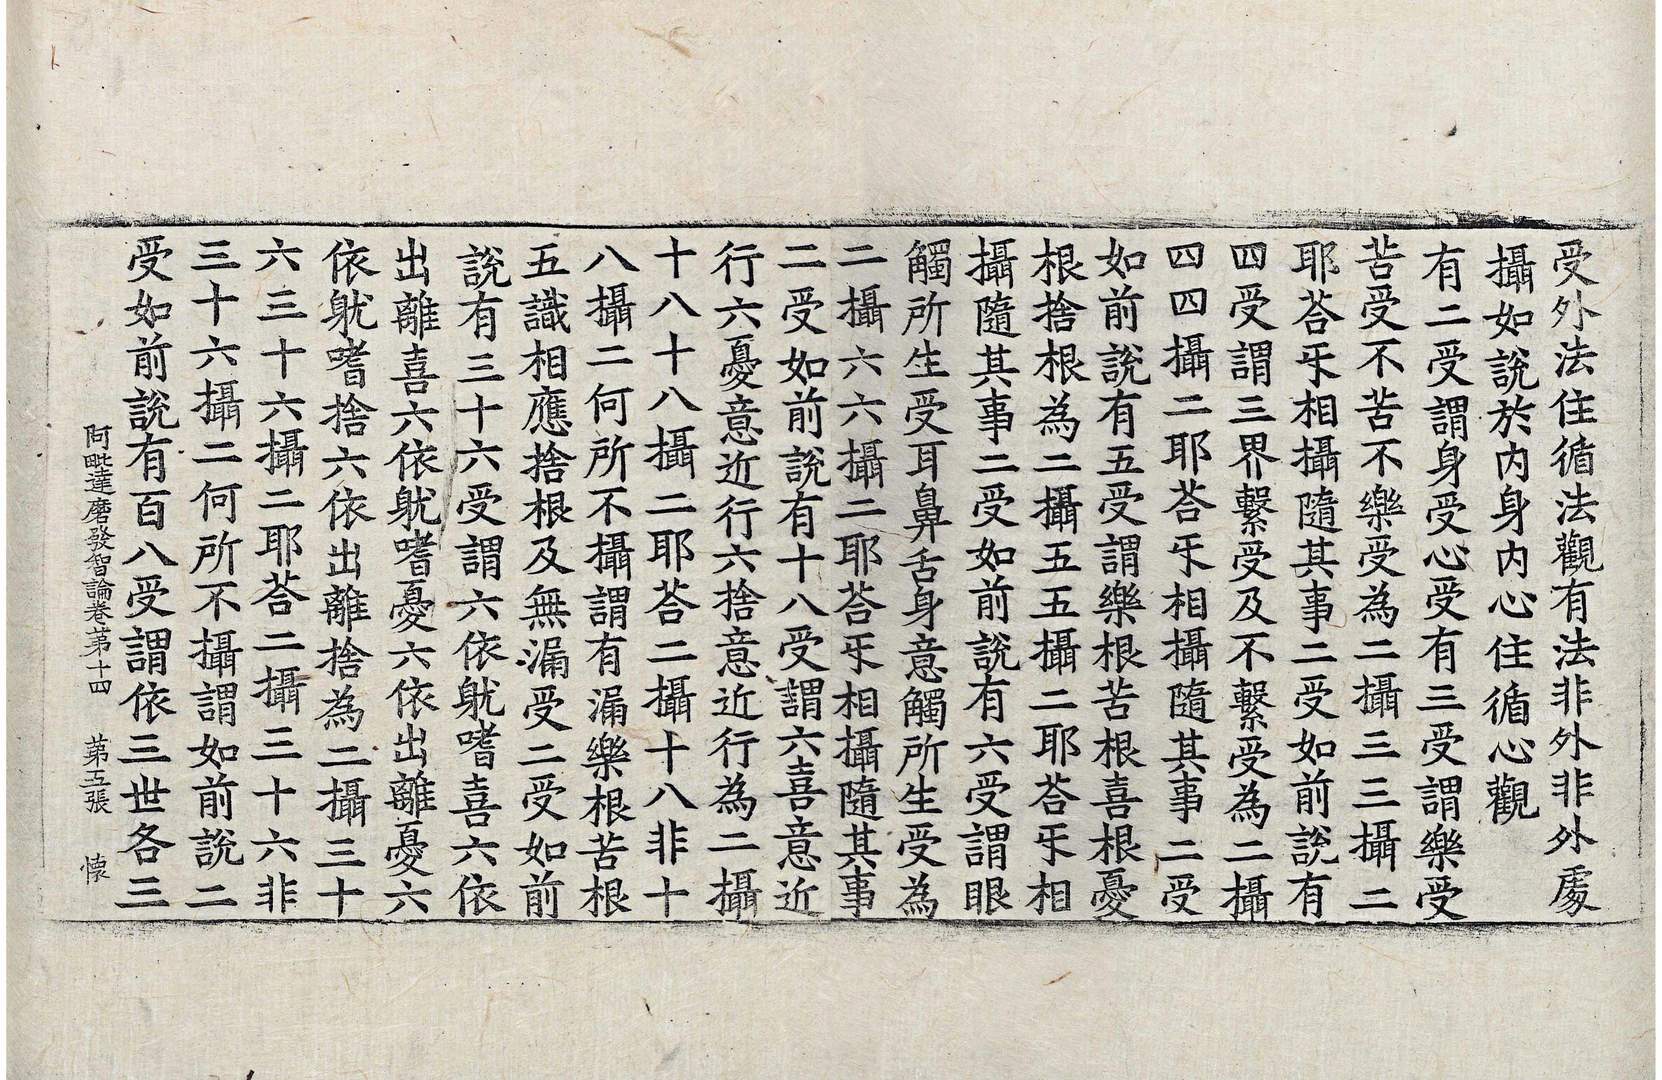 受外法住循法觀有法非外非外處
攝如說於內身內心住循心觀
有二受謂身受心受有三受謂樂受
苦受不苦不樂受為二攝三三攝二
耶荅𠄔相攝隨其事二受如前說有
四受謂三界繫受及不繫受為二攝
四四攝二耶荅𠄔相攝隨其事二受
如前說有五受謂樂根苦根喜根憂
根捨根為二攝五五攝二耶荅𠄔相
攝隨其事二受如前說有六受謂眼
觸所生受耳鼻舌身意觸所生受為
二攝六六攝二耶荅𠄔相攝隨其事
二受如前說有十八受謂六喜意近
行六憂意近行六捨意近行為二攝
十八十八攝二耶荅二攝十八非十
八攝二何所不攝謂有漏樂根苦根
五識相應捨根及無漏受二受如前
說有三十六受謂六依躭嗜喜六依
出離喜六依躭嗜憂六依出離憂六
依躭嗜捨六依出離捨為二攝三十
六三十六攝二耶荅二攝三十六非
三十六攝二何所不攝謂如前說二
受如前說有百八受謂依三世各三
阿毗達磨發智論卷第十四 第五張 懷